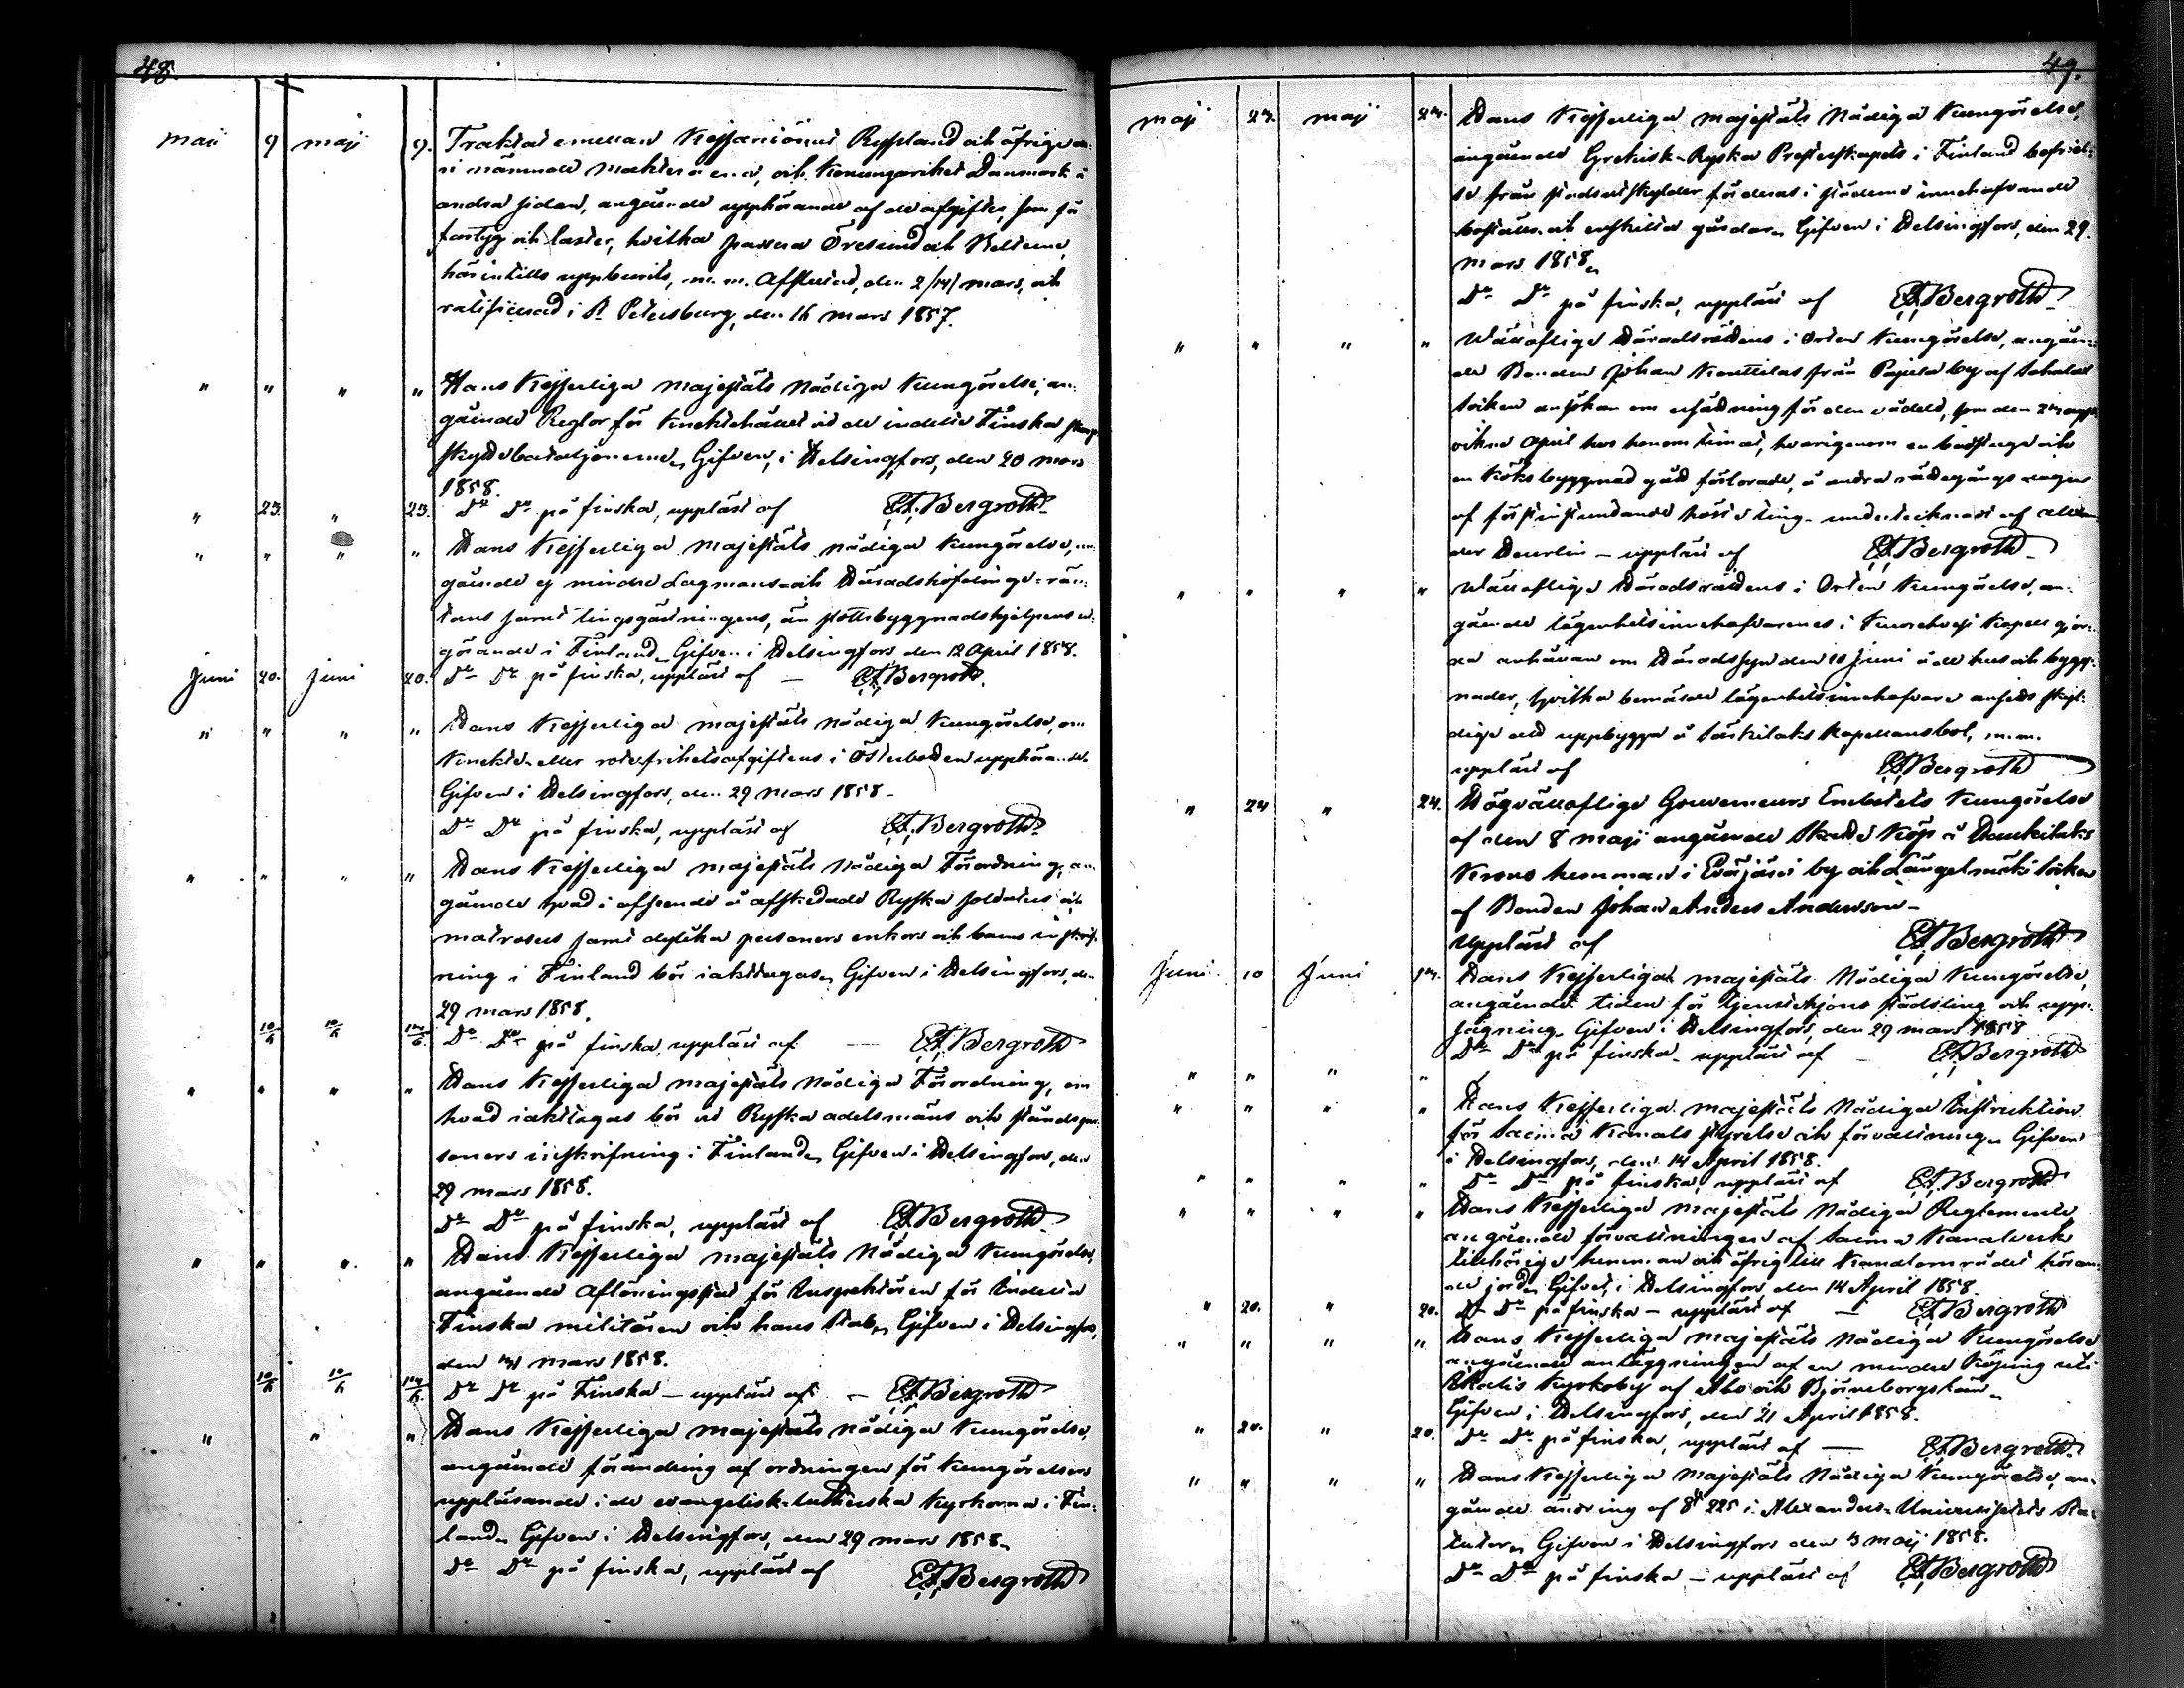 48.
maii 9 maji 9. Traktat emellan Kejsardömet Ryssland och öfrige
nämnde makter å ena, och Konungariket Danmark å
andra sidan, angående upphörande af de afgifter, som för
fartyg och laster, hvilka passera Öresund och Belterne,
härintills uppburits, m. m. Afslutad, den 2/14/ mars, och
ratificerad i St Petersburg, den 16 mars 1857.
" " " " Hans Kejserliga Majestäts Nådiga Kungörelse, an-
gående Reglor för Knektehållet vid de indelte Finska skarp-
skyttebataljonerne, Gifven, i Helsingfors, den 20 mars
1858.
" 23. " 23. Do Do på finska, uppläst af E. A. Bergroth
" " " " Hans Kejserliga Majestäts nådiga Kungörelse, an-
gående ej mindre Lagmans- och Häradshöfdinge-rän-
tans samt tingsgästningens, än slottsbyggnadshjelpens ut-
görande i Finland, Gifven i Helsingfors den 12 April 1858.
Juni 20. Juni 20. Do Do på finska, uppläst af — E. A. Bergroth
" " " " Hans Kejserliga Majestäts Nådiga Kungörelse, om
Knekte- eller rotefrihetsafgiftens i Österbotten upphörande.
Gifven i Helsingfors, den 29 mars 1858 -
Do Do på finska, uppläst af E. A. Bergroth
" " " " Hans Kejserliga Majestäts Nådiga Förordning, an-
gående hvad i afseende å afskedade Ryska soldaters och
matrosers samt dylika personers enkors och barns inskrif-
ning i Finland bör iakttagas, Gifven i Helsingfors, den
29 mars 1858.
10/6 10/6 Do Do på finska, uppläst af — E. A. Bergroth
" " " " Hans Kejserliga Majestäts Nådiga Förordning, om
hvad iakttagas bör vid Ryska adelsmäns och ståndsper-
soners inskrifning i Finland, Gifven i Helsingfors, den
29 mars 1858.
Do Do på finska, uppläst af E. A. Bergroth
" " " " Hans Kejserliga Majestäts Nådiga Kungörelse,
angående aflöningsstat för Inspektören för Indelta
Finska militären och hans Stab, Gifven i Helsingfors,
den mars 1858.
10/6 10/6 Do Do på Finska — uppläst af — E. A. Bergroth
" " " Hans Kejserliga Majestäts nådiga Kungörelse,
angående förändring af ordningen för Kungörelsers
uppläsande i de evangelisk-lutherska Kyrkorna i Fin-
land, Gifven i Helsingfors, den 29 mars 1858,
Do Do på finska, uppläst af E. A. Bergroth
49.
maji maji Hans Kejserliga Majestäts Nådiga Kungörelse,
angående Grekisk-Ryska Presterskapets i Finland befriel-
se från stadsutskylder för deras i städerne innehafvande
boställs- och enskilda gårdar, Gifven i Helsingfors, den 29.
mars 1858,
Do Do på finska, uppläst af E. A. Bergroth
" " " " Wällofliga Häradsrättens i Orten Kungörelse, angåen-
de Bonden Johan från by af
socken ansökan om ersättning för den vådeld, som den
April hos honom timat, hvarigenom en
en Köksbyggnad gått förlorade, å andra rättegångs dagen
af förstinstundande höste ting - undertecknad af
— uppläst af E. A. Bergroth
" " " " Wällofliga Häradsrättens i Orten Kungörelse, an-
gående lägenhetsinnehafvarenes i Kuorehvesi Kapell gjor-
da anhållan om Häradssyn den 10 Juni å de hus och bygg-
nader, hvilka bemälde lägenhetsinnehafvare ansetts skyl-
dige att uppbygga å Kapellansbol, m. m.
uppläst af E. A. Bergroth
" 24 " 24. Högvällofliga Gouverneurs Embetets Kungörelse
af den 8 maji angående skedde Köp å
Krono hemman i Eväjärvi by och Längelmäki socken
af Bonden Johan Anders Andersson -
Uppläst af E. A. Bergroth
Juni 10 Juni Hans Kejserliga Majestäts Nådiga Kungörelse,
angående tiden för tjenstehjons städsling och upp-
sägning. Gifven i Helsingfors, den 29 mars 1858
" " " " Do Do på finska - uppläst af — E. A. Bergroth
" " " " Hans Kejserliga Majestäts Nådiga Instruktion
för Saima Kanals styrelse och förvaltning, Gifven
i Helsingfors, den 14 April 1858.
" " " " Do Do på finska, uppläst af E. A. Bergroth
" " " " Hans Kejserliga Majestäts Nådiga Reglemente,
angående förvaltningen af Saima Kanalverk
tillhörige hemman och öfrig till Kanalområdet höran-
de jord, Gifvet, i Helsingfors, den 14 April 1858.
" 20. " 20. Do Do på finska — uppläst af — E. A. Bergroth
" " " " Hans Kejserliga Majestäts Nådiga Kungörelse
angående anläggningen af en mindre Köping uti
Ikalis Kyrkoby af Åbo och Björneborgs län,
Gifven i Helsingfors, den 21 April 1858.
" 20. " 20. Do Do på finska, uppläst af — E. A. Bergroth
" " " " Hans Kejserliga Majestäts Nådiga Kungörelse, an-
gående ändring af § 225 i Alexanders-Universitetets Sta-
tuter, Gifven i Helsingfors den 3 maij 1858.
Do Do på finska — uppläst af E. A. Bergroth